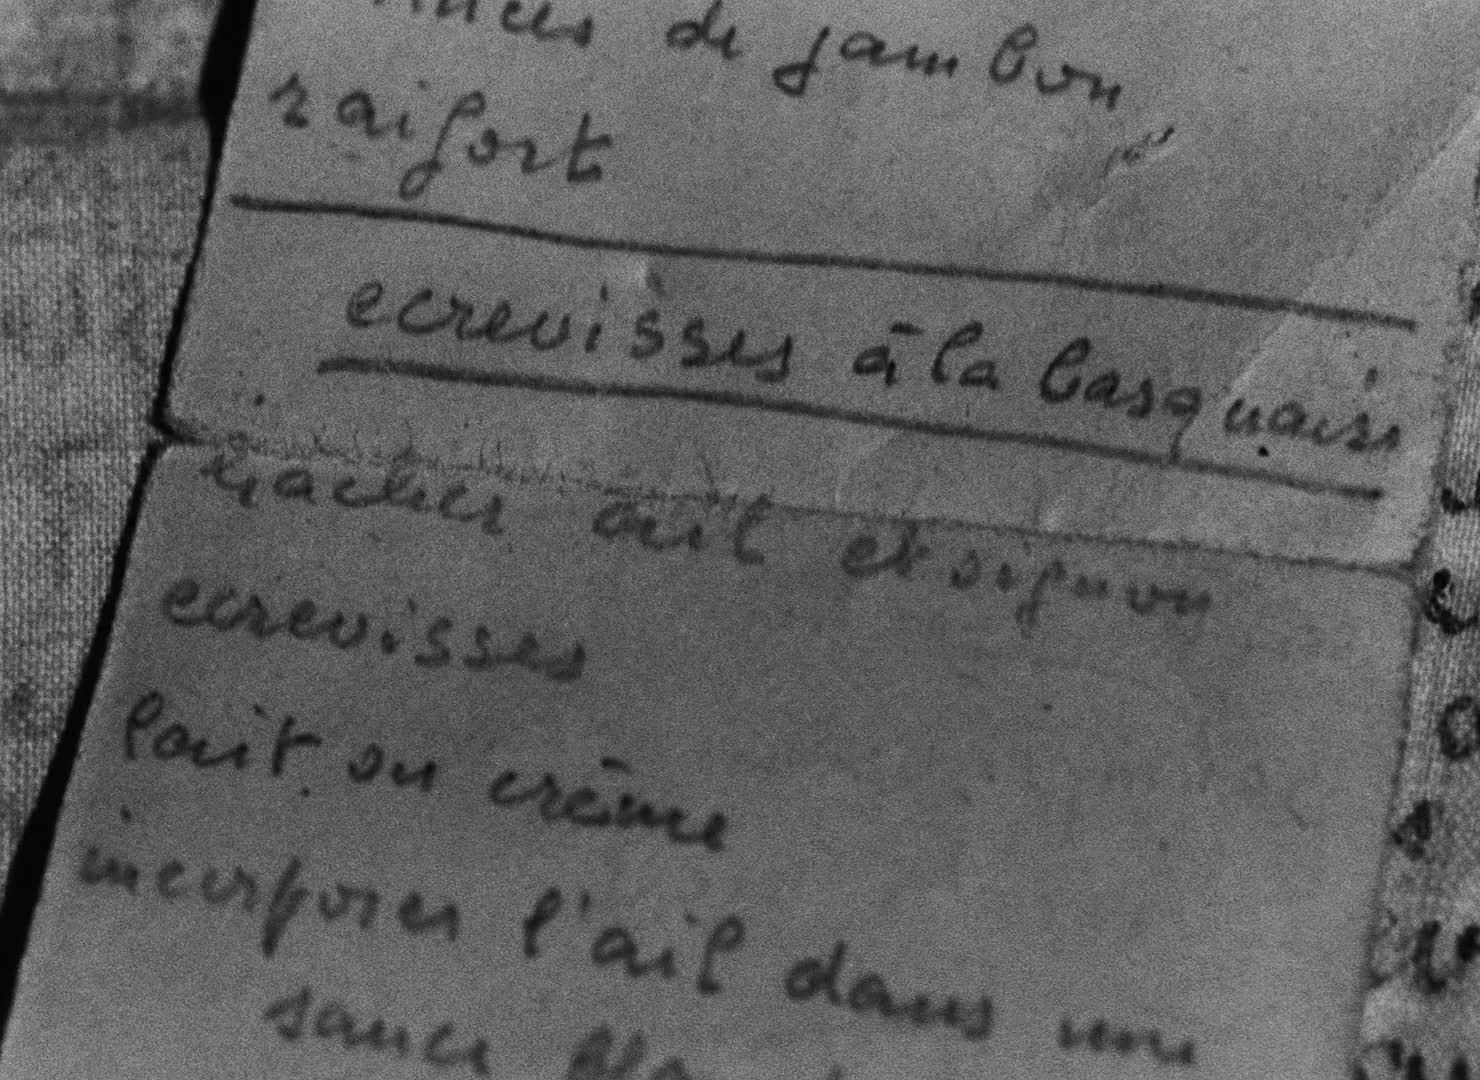 de jambon
raifort
ecrevisses à la basquaise
hacher ail et oignon
ecrevisses
lait ou crème
incorporer l'ail dans une
sauce